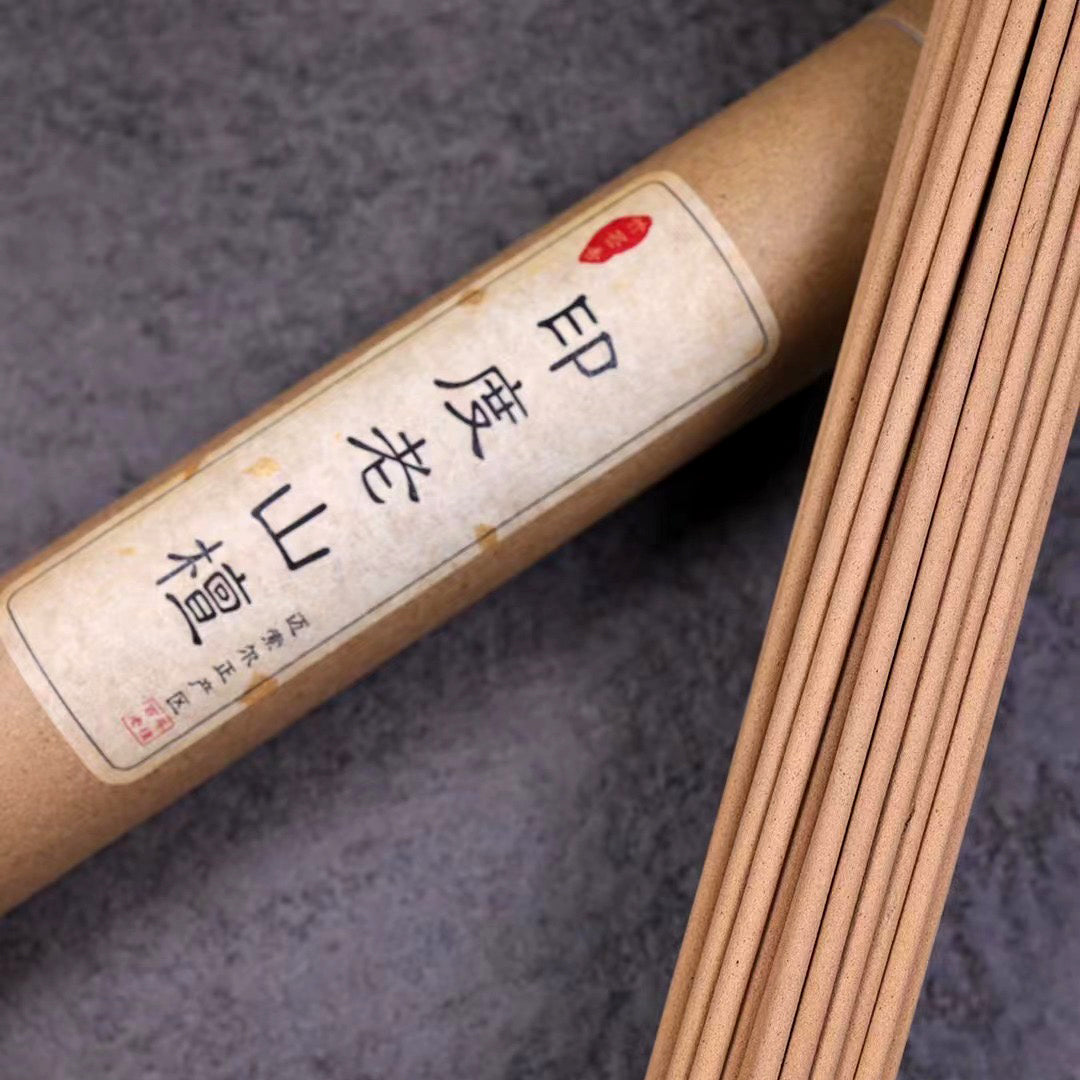 印度老山檀
迈索尔正产区